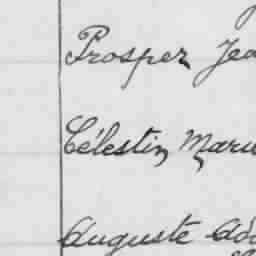 Prosper Jea
Célestin Maru
Auguste Ado